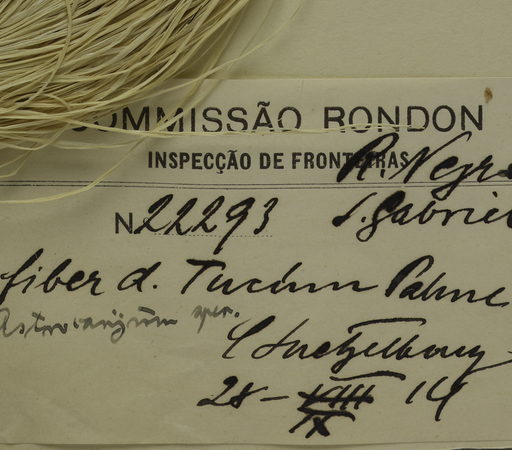 COMMISSÃO RONDON
INSPECÇÃO DE FRONTEIRAS
R. Negro
N 22293 S. Gabriel
fiber d. Tucum Palme
Astrocaryum spec.
Luetzelburg
28 - VIII 14
IX